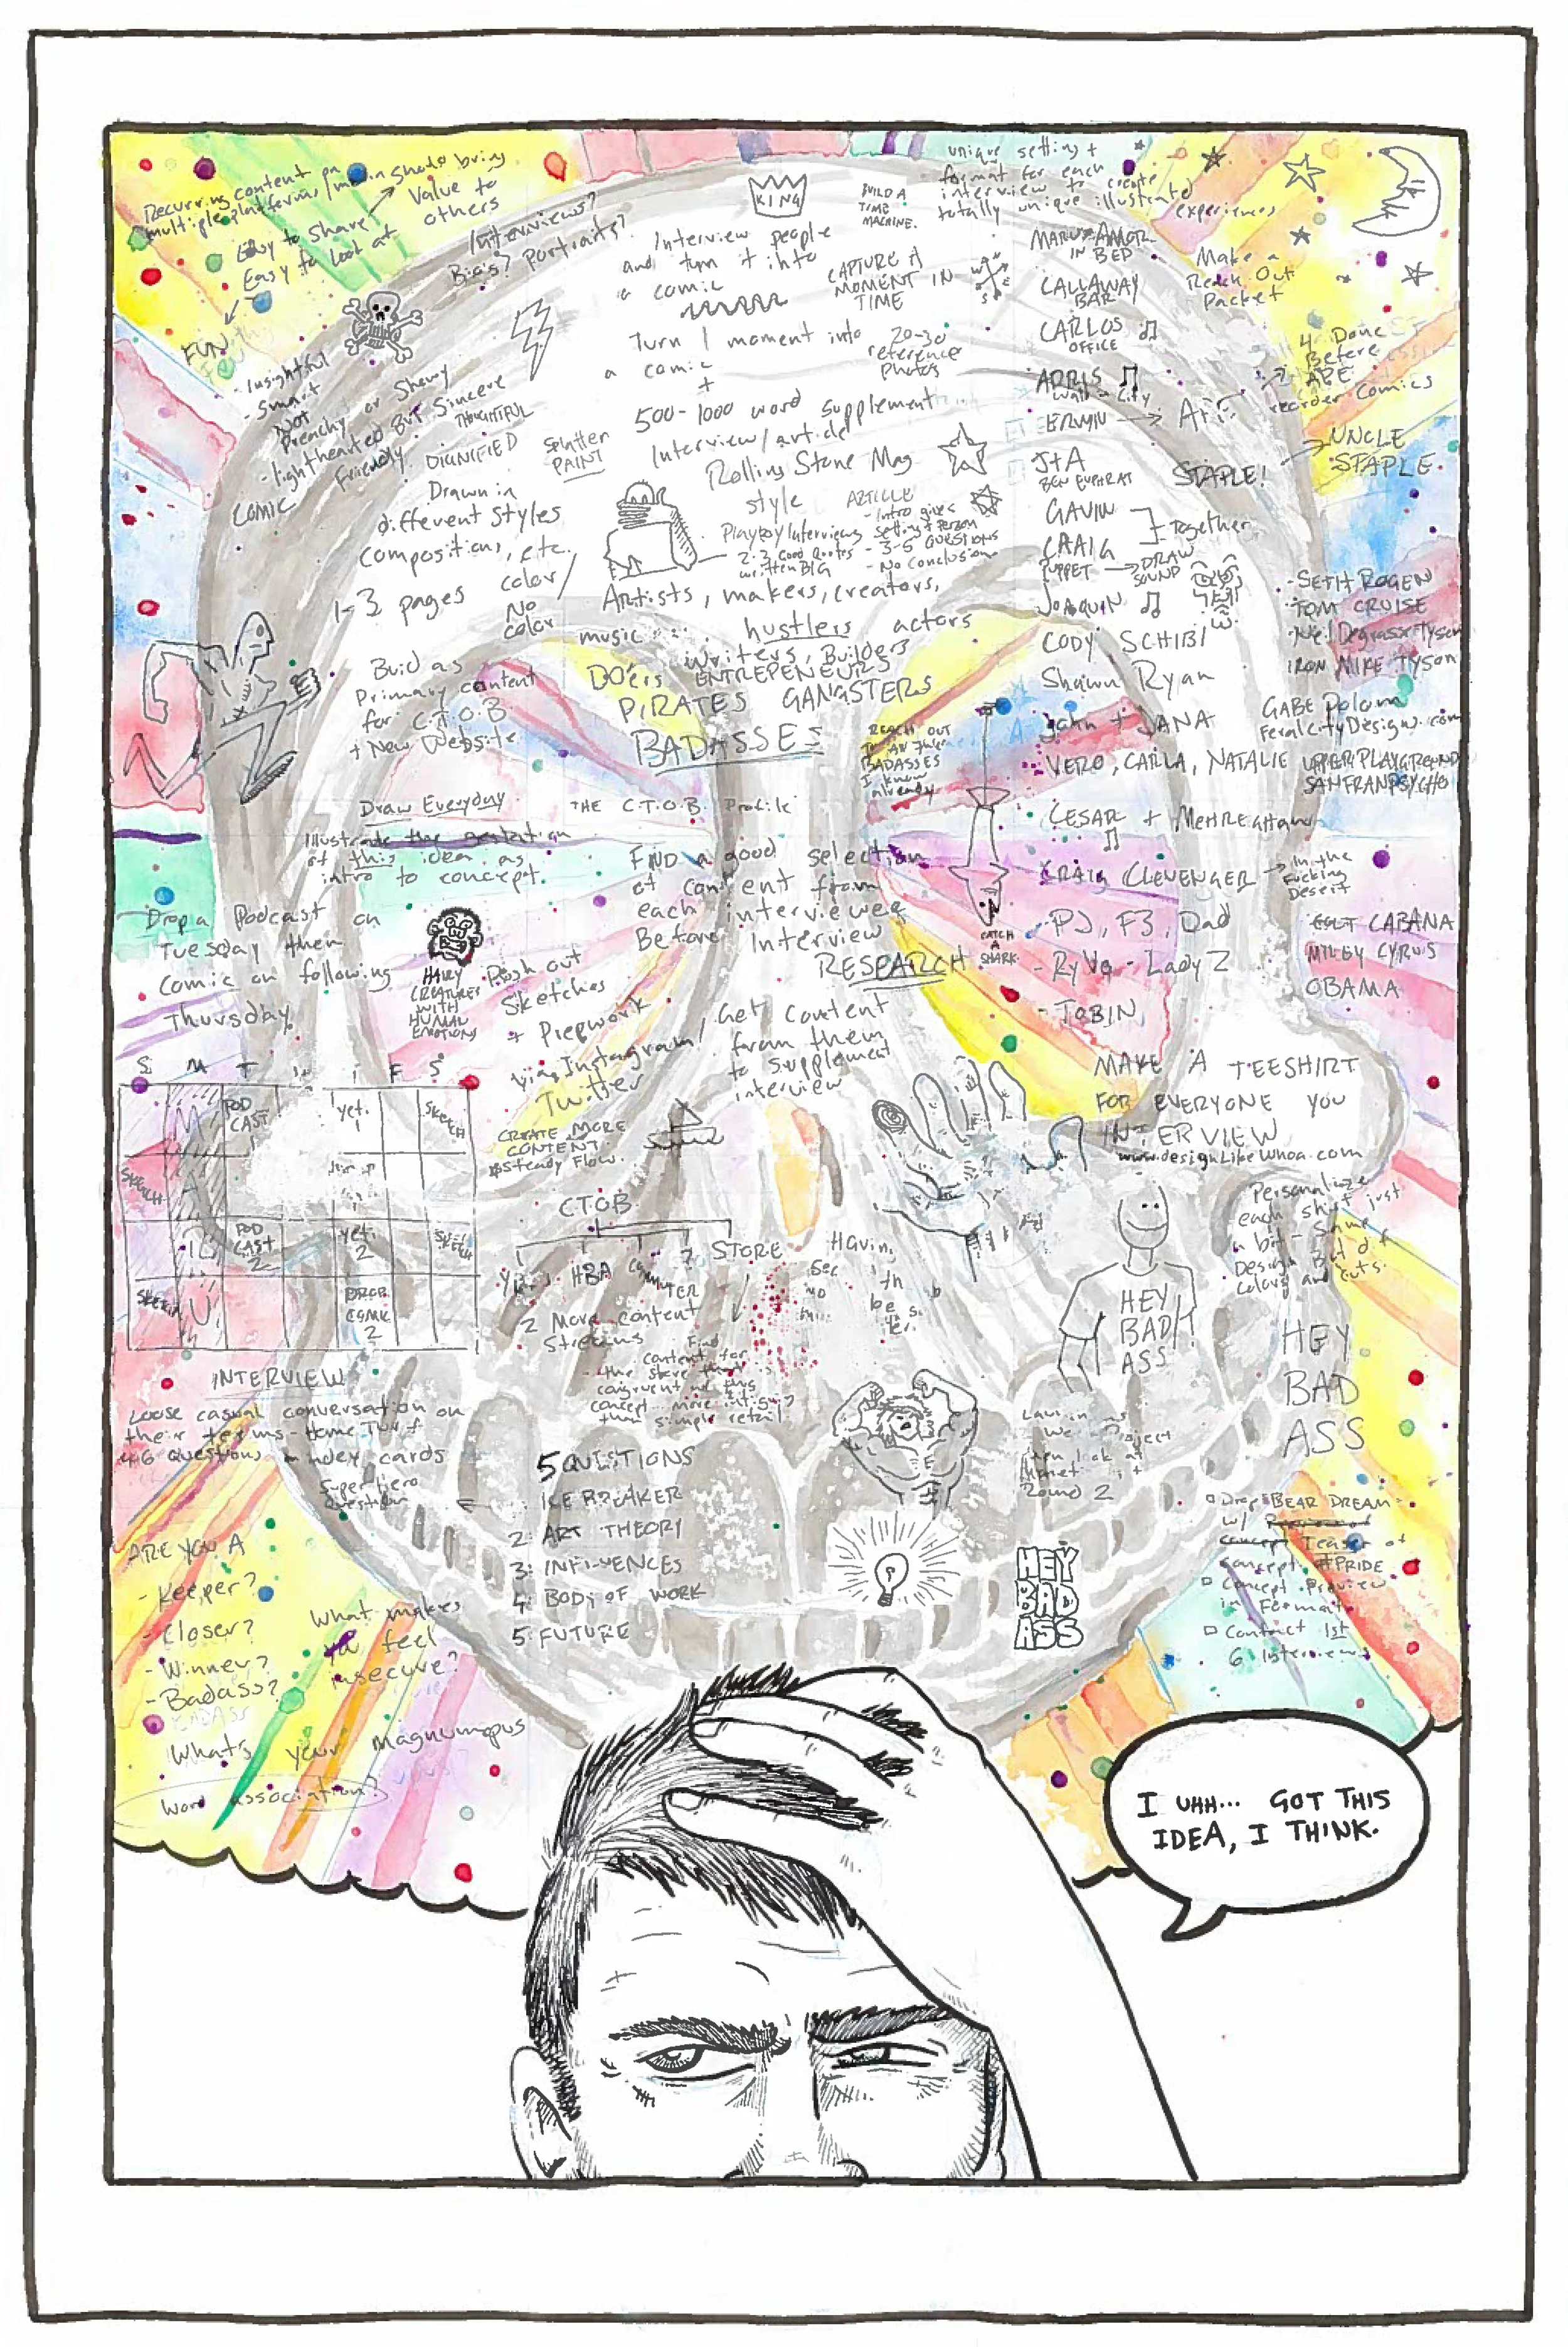 Recurring content on
multiple platforms/
Should bring
Value to
others
Easy to share!
Easy to look at
FUN
- Insightful
- Smart
Not
Preachy or Showy
- lighthearted But Sincere
Friendly
THOUGHTFUL
DIGNIFIED
COMIC
Interviews?
Bio's? Portraits?
KING
BUILD A
TIME
MACHINE.
unique setting +
format for each
interview to create
totally unique illustrated
experiences
Interview people
and turn it into
a comic
CAPTURE A
MOMENT IN
TIME
Turn 1 moment into
a comic
+
20-30
reference
photos
500-1000 word supplement
Interview/article
Rolling Stone Mag
style
SPLATTER
PAINT
Drawn in
different styles
compositions, etc.
1-3 pages
color/
No
color
ARTICLE
- Intro gives
setting + Person
- 3-5 QUESTIONS
- No Conclusion
Playboy Interviews
2-3 Good Quotes
written BIG
Artists, makers, creators,
music
hustlers
actors
writers, Builders
DO'ers ENTREPENEURS
PIRATES GANGSTERS
BADASSES
REACH OUT
BADASSES
I know
already
MARU + AMOR
IN BED
CALLAWAY
BAR
CARLOS
OFFICE
ADRIS
ERMIN
J+A
BEN EUPHRAT
GAVIN
CRAIG
Together
PUPPET
DRAW
SOUND
JOAQUIN
CODY SCHIBI
Shawn Ryan
John + JANA
VERO, CARLA, NATALIE
CESAR +
CRAIG CLEVENGER
In the
Fucking
Desert
- PJ, F3, Dad
- RyVg - Lady Z
- TOBIN
Make a
Reach Out
Packet
4 Done
Before
APE
reorder Comics
STAPLE!
UNCLE
STAPLE
- SETH ROGEN
TOM CRUISE
- Neil Degrasse Tyson
IRON MIKE TYSON
GABE Polom
FeralCityDesigns.com
UPPERPLAYGROUND
SANFRANPSYCHO
COLT CABANA
MILEY CYRUS
OBAMA
Build as
Primary content
for C.T.O.B
+ New Website
Draw Everyday
Illustrate the gestation
of this idea as
intro to concept.
THE C.T.O.B. Profile
FIND a good selection
of content from
each interviewee
Before Interview
RESEARCH
CATCH
A
SHARK
Drop a Podcast on
Tuesday then
Comic on following
Thursday
HAIRY
CREATURES
WITH
HUMAN
EMOTIONS
Push out
Sketches
+ Prepwork
via Instagram/
Twitter
Get content
from them
to supplement
interview
S M T F S
POD
CAST
SKETCH
SKETCH
POD
CAST
2
SKETCH
SKETCH
DROP
COMIC
2
CREATE MORE
CONTENT
Steady Flow.
CTOB
HBA
STORE
2 More content
Streams
Find
content for
the store that is
congruent w/ this
concept... more intrigue?
than simple retail
MAKE A TEESHIRT
FOR EVERYONE YOU
INTERVIEW
www.designLikeWhoa.com
Personalize
each shirt just
a bit - Same
Design But diff
Colors and cuts.
HEY
BAD
ASS
HEY
BAD
ASS
INTERVIEW
Loose casual conversation on
their terms - Home Turf
4-6 Questions on index cards
Super Hero
Question
5 QUESTIONS
ICE BREAKER
2: ART THEORY
3: INFLUENCES
4: BODY OF WORK
5: FUTURE
Round 2
HEY
BAD
ASS
Drop "BEAR DREAM"
w/
concept Teaser of
concept #PRIDE
Concept Preview
in Format
Contact 1st
6 Interviews
ARE YOU A
- Keeper?
- Closer?
- Winner?
- Badass?
What makes
you feel
insecure?
What's your magnumopus
Word association?
I UHH... GOT THIS
IDEA, I THINK.